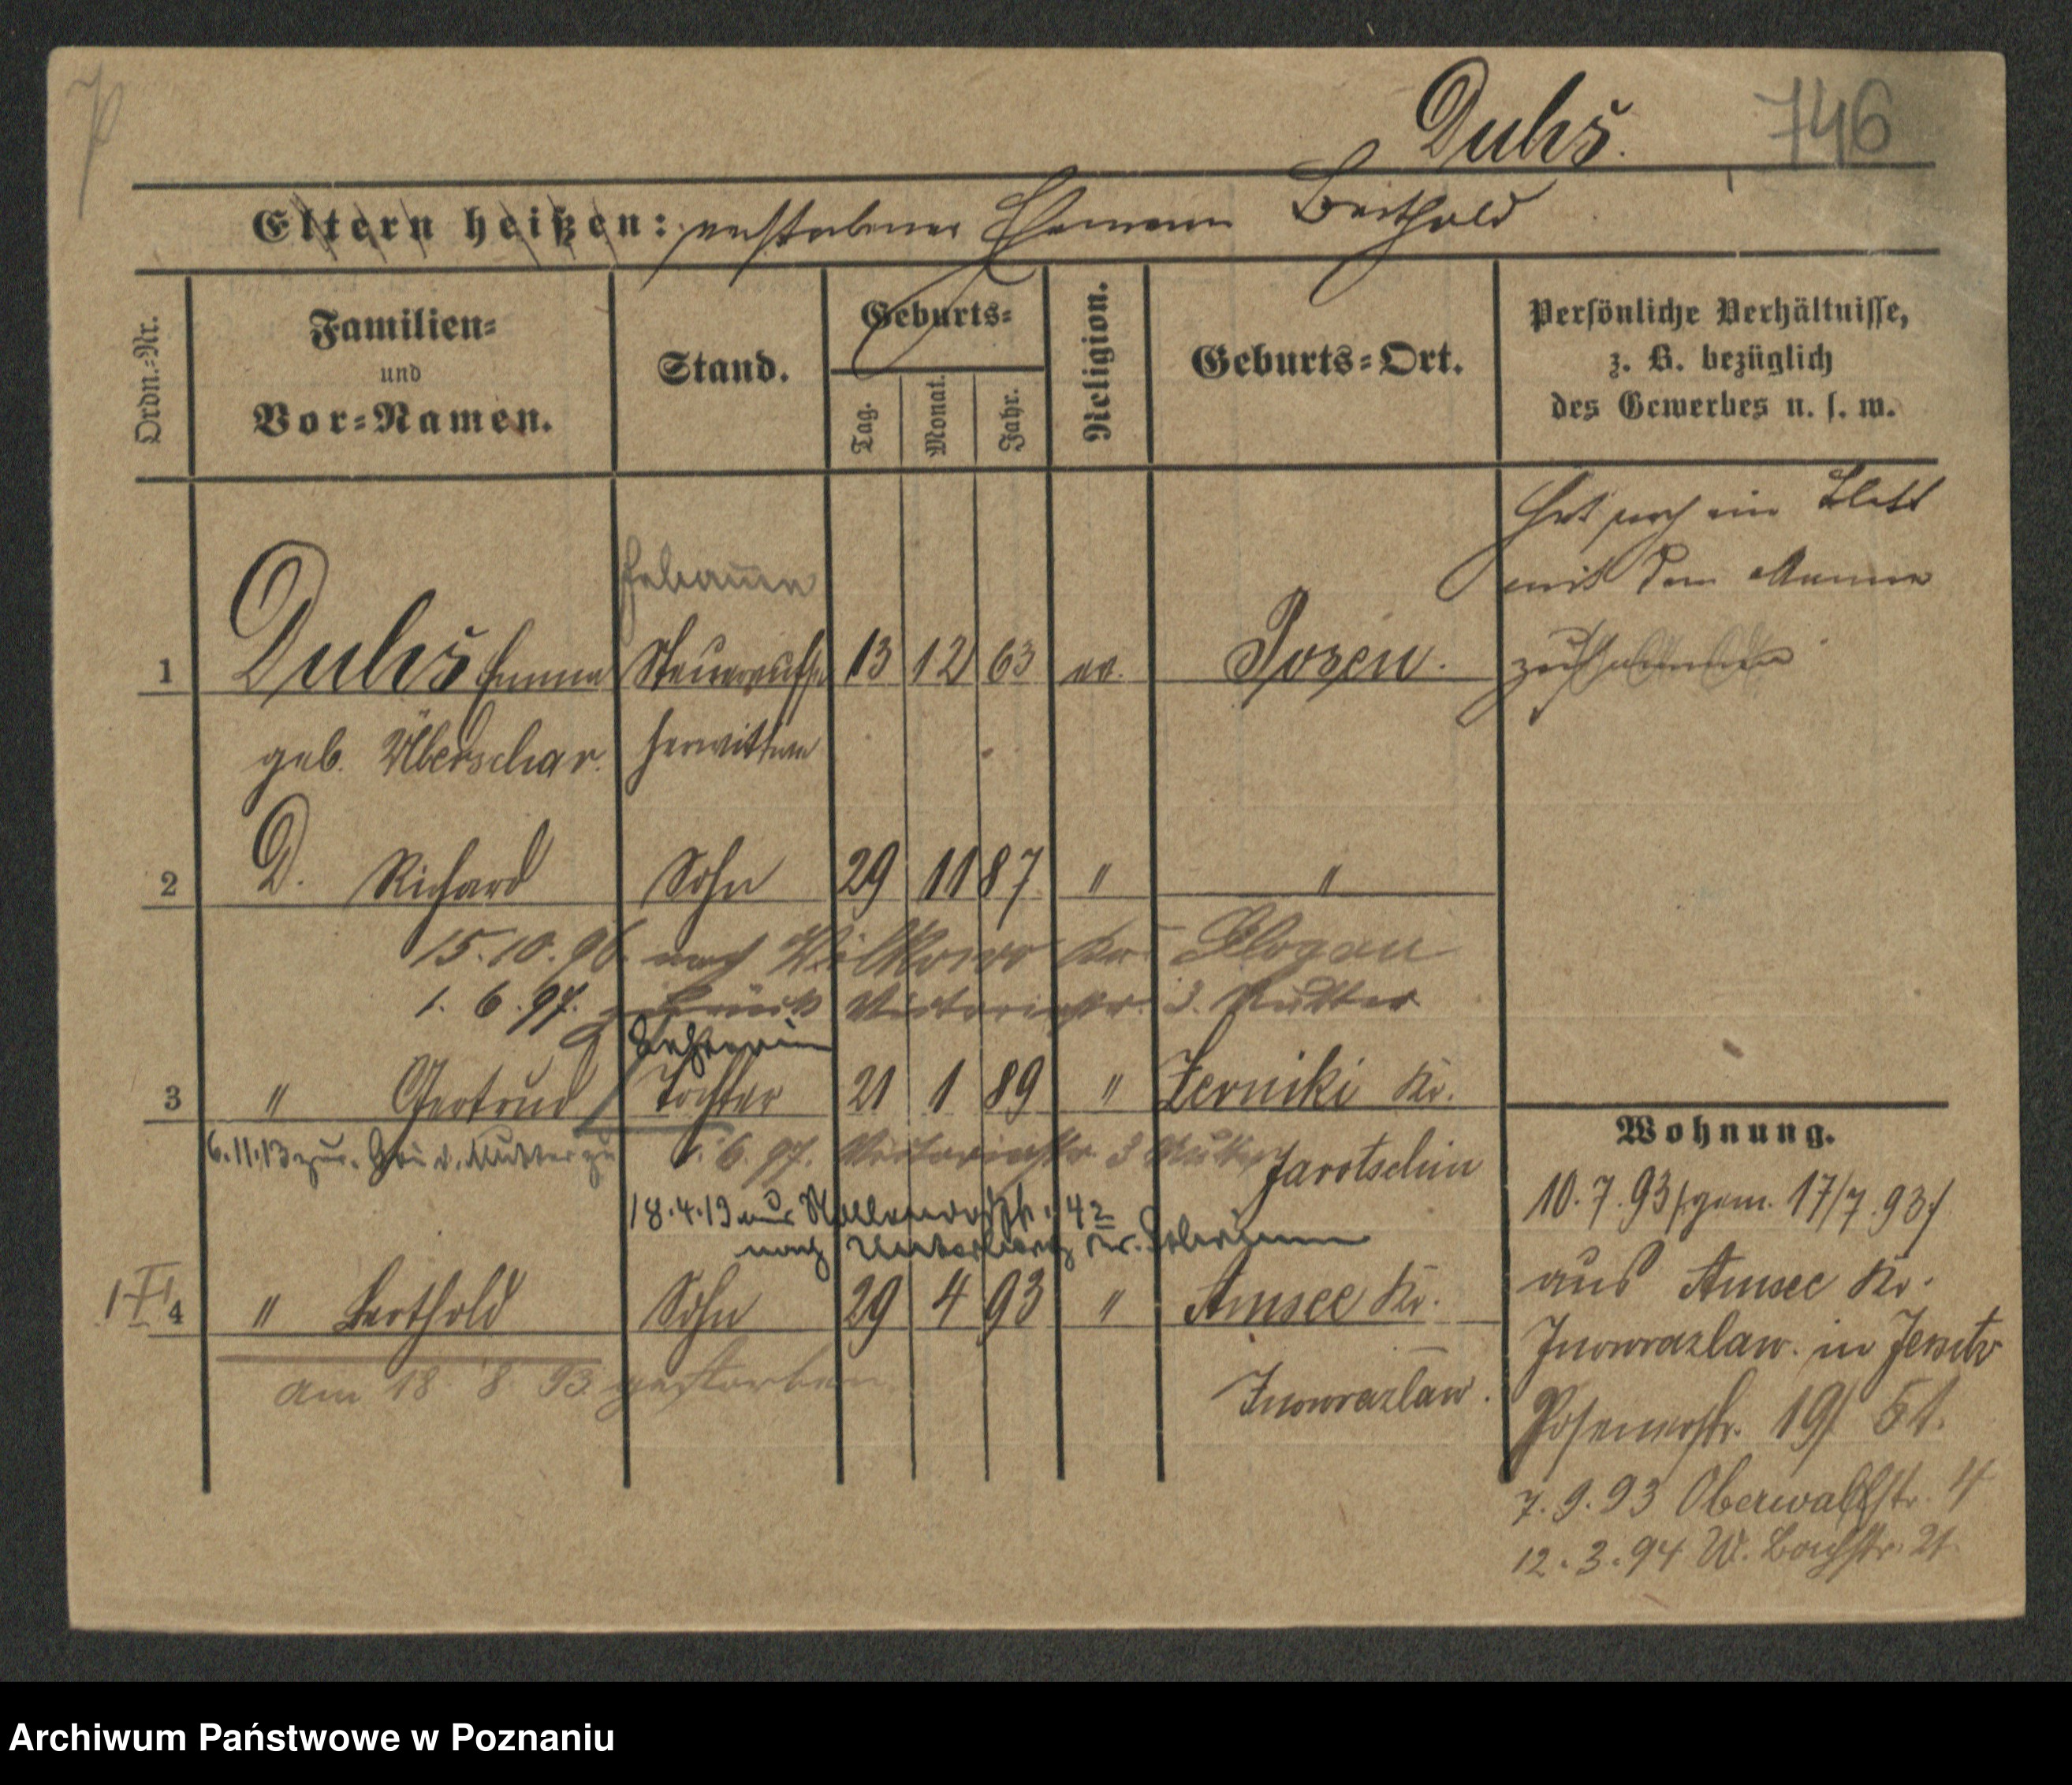 Duhš.
746
Eltern heißen: verstorbener Ehemann Berthold
Ordn.-Nr.
Familien-
und
Vor-Namen.
Stand.
Geburts-
Tag.
Monat.
Jahr.
Religion.
Geburts-Ort.
Persönliche Verhältnisse,
z. B. bezüglich
des Gewerbes u. s. w.
Hat noch ein Blatt
mit dem Manne
zusammen
Hebamme
1 Duhš Emma Steueraufse 13 12 63 ev. Posen.
geb. Überschar. herwittwe
2 D. Richard Sohn 29 11 87 " "
15.10.96. nach Wilkowo Kr. Glogau
1. 6. 97. zurück Victoriastr. 3. Mutter
Lehrerin
3 " Gertrud Tochter 21 1 89 " Zerniki Kr.
Jarotschin
6.11.13 zur. v. Mutter zu
1. 6. 97. Victoriastr. 3 Mutter
18.4.19 42
nach Kr.
4 " Berthold Sohn 29 4 93 " Amsee Kr.
Inowrazlaw.
am 18 8 93 gestorben
Wohnung.
10. 7. 93 (gem. 17/7. 93)
aus Amsee Kr.
Inowrazlaw. in Jersitz
Posenerstr. 19/ 51.
7. 9. 93 Oberwallstr. 4
12. 3. 94 W. Bachstr. 21
Archiwum Państwowe w Poznaniu